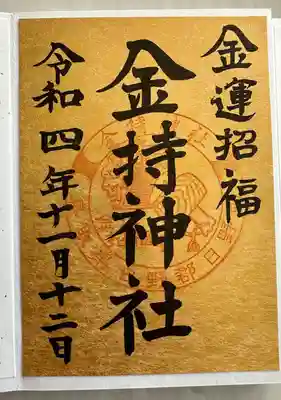 金運招福
金持神社
令和四年十一月十二日